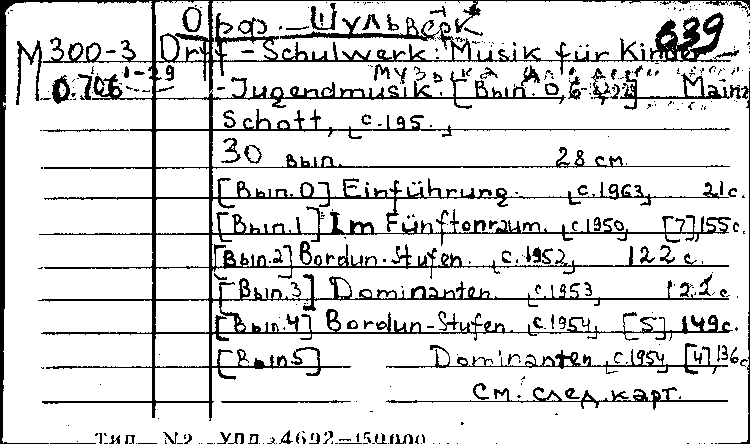 Орф.-Шульверк
639
М300-3 Orff-Schulwerk: Musik für Kinder
О.706 1-29 музыка для
-Jugendmusik. [Вып. 0, Mainz
Schott, [с.195.]
30 вып. 28 см
[Вып.0] Einführung. [с.1963] 21с.
[Вып.1] Im Fünftonraum. [с.1950] [7], 155с.
[Вып.2] Bordun-Stufen. [с.1952] 122 с.
[Вып.3] Dominanten. [с.1953] 122с.
[Вып.4] Bordun-Stufen. [с.1954] [5], 149с.
[Вып.5] Dominanten [с.1954] [4], 136с
См. след. карт.
Тип. №2 Упл. з. 4692-150000